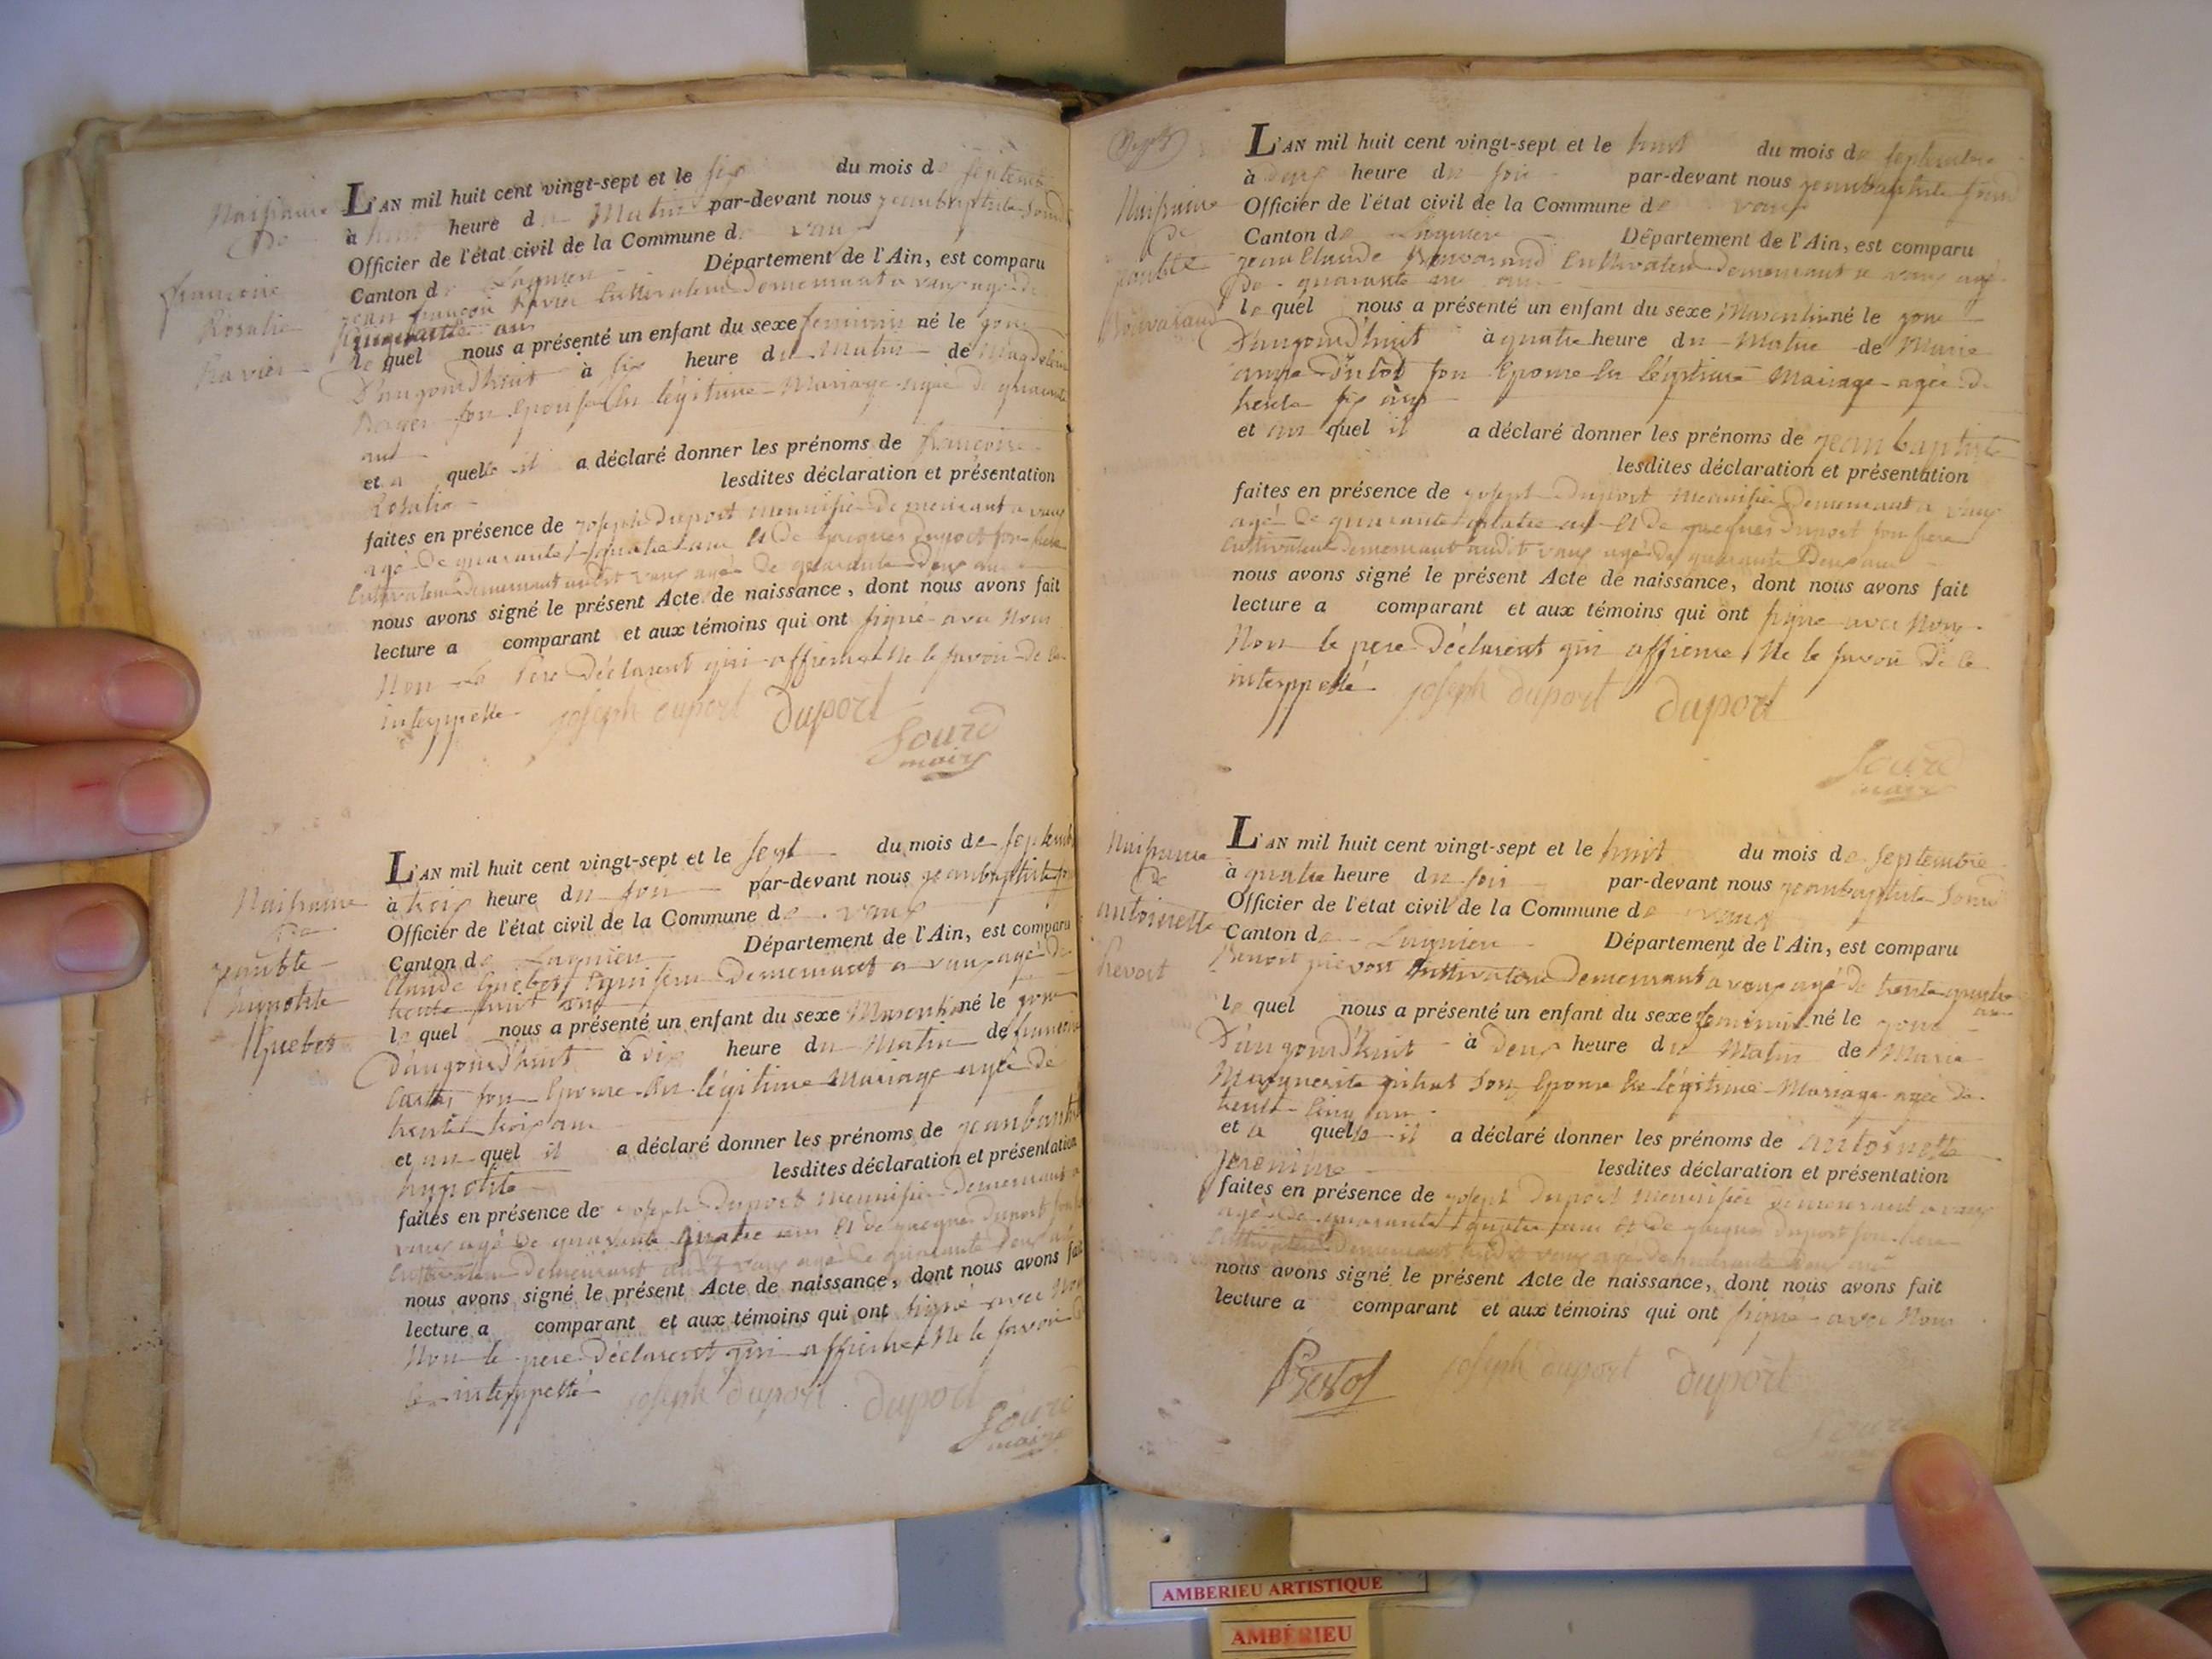 Naissance
De
francoise
Rosalie
Ravier
L'AN mil huit cent vingt-sept et le six du mois de septembre
à huit heure du Matin par-devant nous jeanbaptiste
Officier de l'état civil de la Commune de vaux
Canton de Lagnieu Département de l'Ain, est comparu
jean françois Ravier Cultivateur Demeurant a vaux agé de
ans
le quel nous a présenté un enfant du sexe feminin né le jour
D'aujourd'huit à six heure du Matin de Magdeleine
Berger son Epouse En légitime Mariage agée de quarante
ans
et a quelle il a déclaré donner les prénoms de francoise
Rosalie lesdites déclaration et présentation
faites en présence de joseph Duport Menuisier Demeurant a vaux
agé De quarante quatre ans Et De jacques Duport son frere
Cultivateur Demeurant audit vaux agé De quarante Deux ans
nous avons signé le présent Acte de naissance, dont nous avons fait
lecture a comparant et aux témoins qui ont signé avec Nous
Non le Pere Déclarent qui affirme Ne le savoir De ce
interppellé
joseph duport duport
Sourd
maire
Naissance
De
jeanbte
hypolite
Guebet
L'AN mil huit cent vingt-sept et le sept du mois de septembre
à trois heure du soir par-devant nous jeanbaptiste
Officier de l'état civil de la Commune de vaux
Canton de Lagnieu Département de l'Ain, est comparu
Claude Demeurant a vaux agé De
trente huit ans
le quel nous a présenté un enfant du sexe Masculin né le jour
D'aujourd'huit à dix heure du Matin de
son Epouse En légitime Mariage agée De
trente trois ans
et au quel il a déclaré donner les prénoms de jeanbaptiste
hypolite lesdites déclaration et présentation
faites en présence de joseph Duport Menuisier Demeurant a
vaux agé De quarante quatre ans Et De jacques Duport son
Cultivateur Demeurant audit vaux agé De quarante Deux ans
nous avons signé le présent Acte de naissance, dont nous avons fait
lecture a comparant et aux témoins qui ont signé avec Nous
Non le pere Déclarent qui affirme Ne le savoir De
ce interppellé
joseph duport duport
Sourd
maire
Naissance
de
jeanbte
L'AN mil huit cent vingt-sept et le huit du mois de septembre
à deux heure du soir par-devant nous jeanbaptiste Sourd
Officier de l'état civil de la Commune de vaux
Canton de Lagnieu Département de l'Ain, est comparu
jean Claude Cultivateur Demeurant a vaux agé
De quarante un ans
le quel nous a présenté un enfant du sexe Masculin né le jour
D'aujourd'huit à quatre heure du Matin de Marie
anne son Epouse En légitime Mariage agée De
trente six ans
et au quel il a déclaré donner les prénoms de jean baptiste
lesdites déclaration et présentation
faites en présence de joseph Duport Menuisier Demeurant a vaux
agé De quarante quatre ans Et De jacques Duport son frere
Cultivateur Demeurant audit vaux agé De quarante Deux ans
nous avons signé le présent Acte de naissance, dont nous avons fait
lecture a comparant et aux témoins qui ont signé avec Nous
Non le pere Déclarent qui affirme Ne le savoir De ce
interppellé
joseph duport duport
Sourd
maire
Naissance
De
antoinette
Prevost
L'AN mil huit cent vingt-sept et le huit du mois de septembre
à quatre heure du soir par-devant nous jeanbaptiste Sourd
Officier de l'etat civil de la Commune de vaux
Canton de Lagnieu Département de l'Ain, est comparu
Benoit prevost Cultivateur Demeurant a vaux agé De trente quatre
ans
le quel nous a présenté un enfant du sexe feminin né le jour
D'aujourd'huit à deux heure du Matin de Marie
Marguerite son Epouse En légitime Mariage agée de
trente Cinq ans
et a quelle il a déclaré donner les prénoms de antoinette
jeronime lesdites déclaration et présentation
faites en présence de joseph Duport Menuisier Demeurant a vaux
agé De quarante quatre ans Et De jacques Duport son frere
Cultivateur Demeurant audit vaux agé De quarante Deux ans
nous avons signé le présent Acte de naissance, dont nous avons fait
lecture a comparant et aux témoins qui ont signé avec Nous
joseph duport duport
Sourd
AMBERIEU ARTISTIQUE
AMBÉRIEU